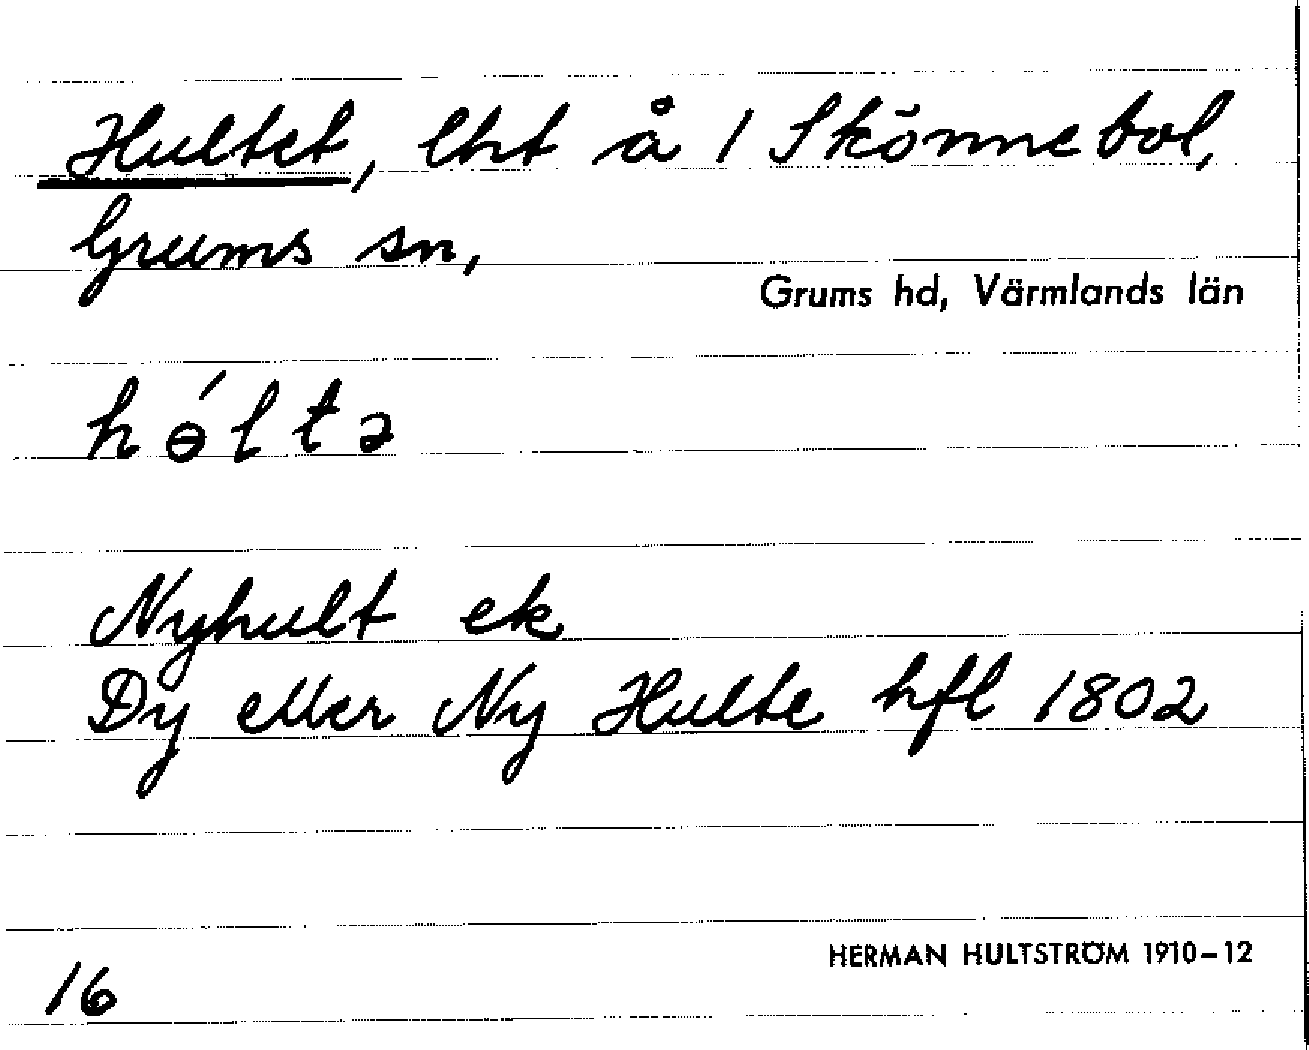 Hultet, lht å 1 Skönnebol,
Grums sn,
Grums hd, Värmlands län
hɵ́ltə
Nyhult ek
Dy eller Ny Hulte hfl 1802
HERMAN HULTSTRÖM 1910–12
16